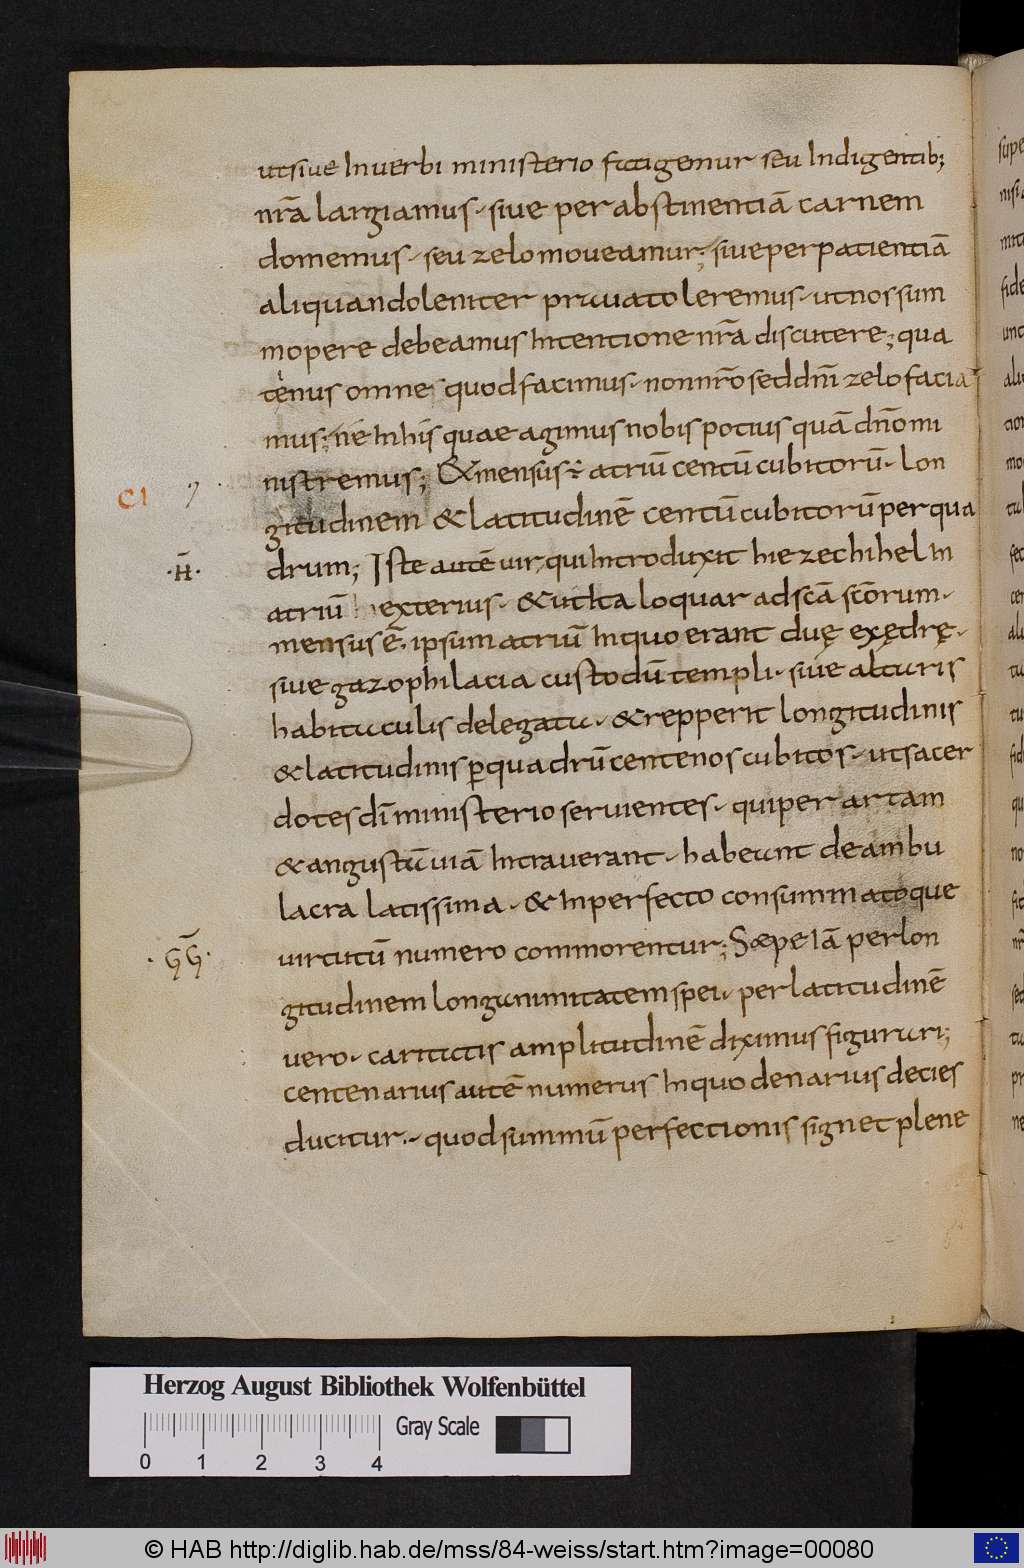 utsive Inverbi ministerio fatigemur seu Indigentib;
nr̄a largiamus. sive per abstinentiā carnem
domemus. seu zelo moveamur; sive per patientiā
aliquando leniter privato leremus. ut nos sum
mopere debeamus Intentione nr̄a discutere; qua
tenus omne quod facimus. non nr̄o sed dn̄i zelo facia
mus; ne In his quae agimus nobis potius quā dn̄o mi
nistremus; & mensus ÷ atriū centū cubitorū. lon
CI
gitudinem & latitudinē centū cubitorū per qua
·H̄· drum; Iste autē vir, qui Introduxit hiezechihel In
atriū exterius. & utita loquar ad scā scōrum.
mensus ē. ipsum atriū In quo erant duę exędrę.
sive gazophilacia custodū templi. sive alturis
habitaculis delegata. & repperit longitudinis
& latitudinis p quadrū centenos cubitos. ut sacer
dotes dī ministerio servientes. qui per artam
& angustū viā Intraverant. habeant deambu
lacra latissima. & In perfecto consummatoque
·GḠ· virtutū numero commorentur; Sæpe Iā per lon
gitudinem longanimitatem spei. per latitudinē
vero. caritatis amplitudinē diximus figurari;
centenarius autē numerus In quo denarius decies
ducitur. quod summū perfectionis signet plene
Herzog August Bibliothek Wolfenbüttel
Gray Scale
0 1 2 3 4
© HAB http://diglib.hab.de/mss/84-weiss/start.htm?image=00080